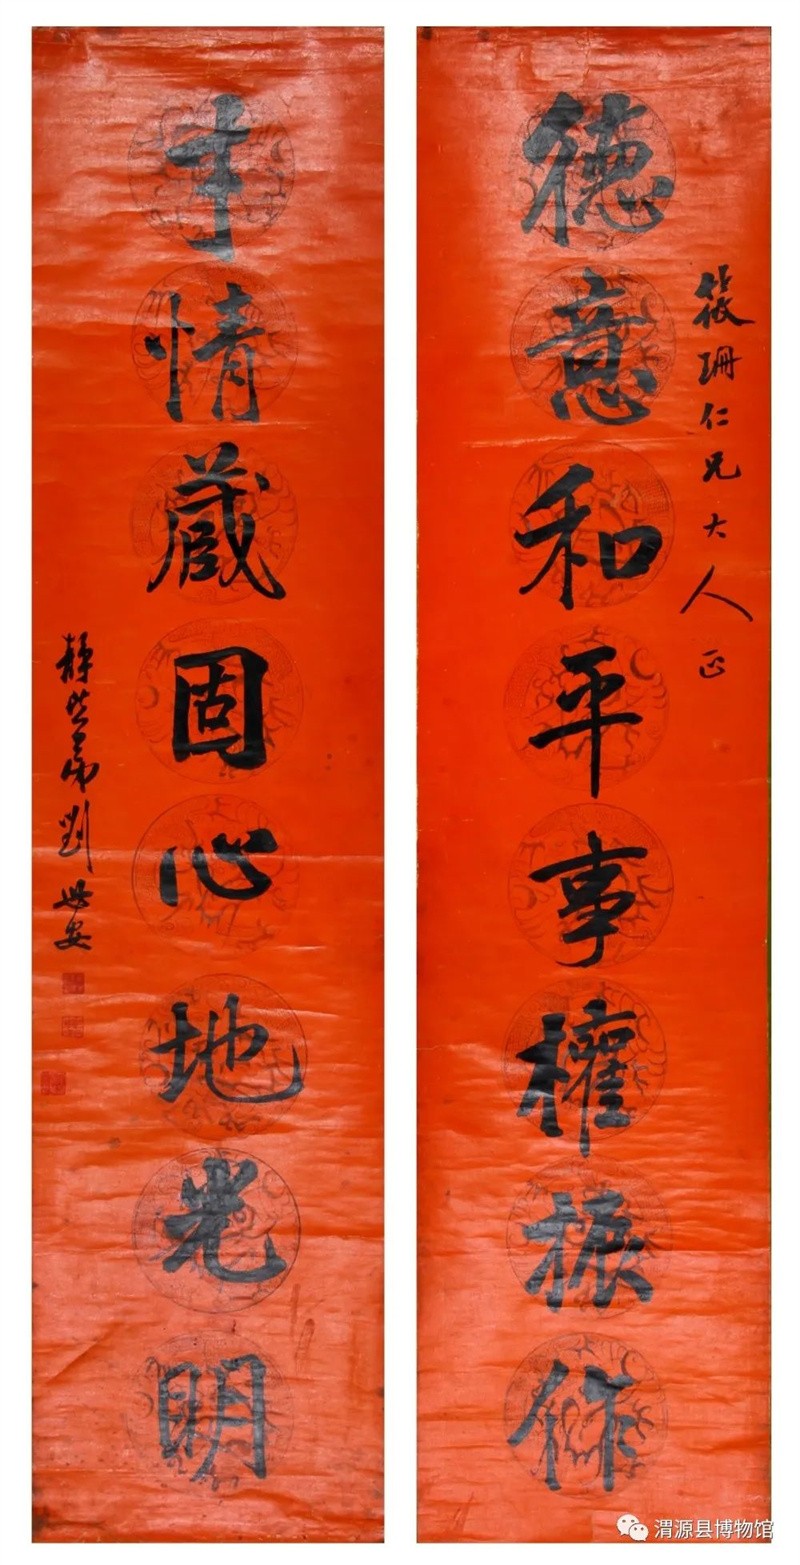 筱珊仁兄大人正
德意和平事權振作
才情藏固心地光明
靜皆弟劉世安
渭源县博物馆